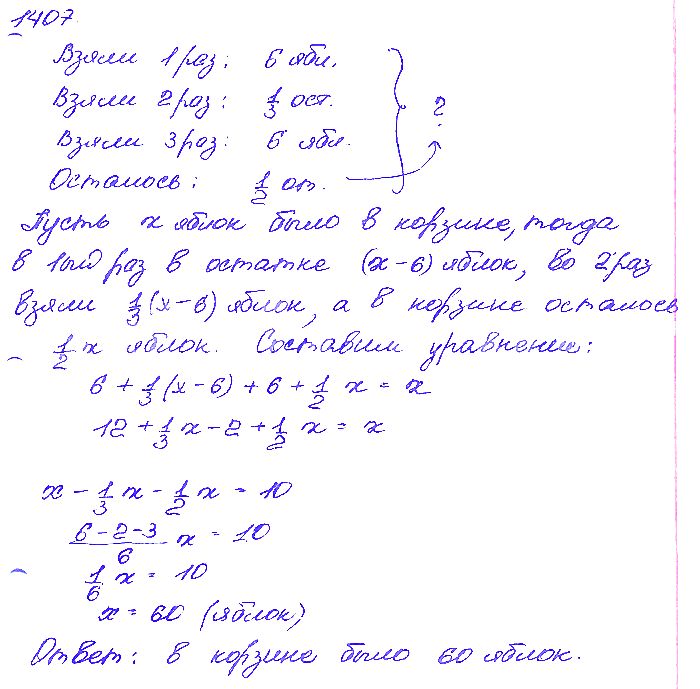 1407.
Взяли 1 раз: 6 ябл.
Взяли 2 раз: 1/3 ост.
Взяли 3 раз: 6 ябл.
?
Осталось: 1/2 от.
Пусть x яблок было в корзине, тогда
в 1ый раз в остатке (x-6) яблок, во 2 раз
взяли 1/3(x-6) яблок, а в корзине осталось
1/2 x яблок. Составим уравнение:
6 + 1/3(x-6) + 6 + 1/2 x = x
12 + 1/3 x - 2 + 1/2 x = x
x - 1/3 x - 1/2 x = 10
(6-2-3)/6 x = 10
1/6 x = 10
x = 60 (яблок)
Ответ: в корзине было 60 яблок.